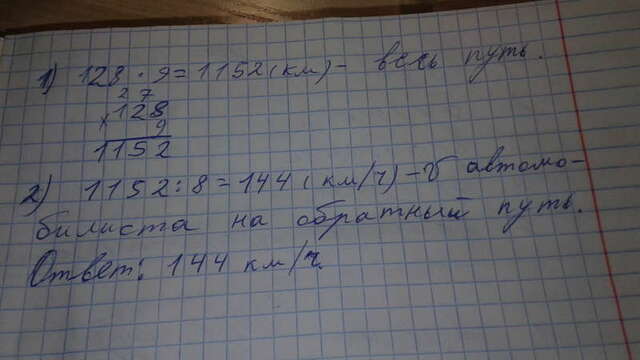 1) 128 · 9 = 1152 (км) - весь путь.
2 7
×128
9
1152
2) 1152 : 8 = 144 (км/ч) - v автомо-
билиста на обратный путь.
Ответ: 144 км/ч.